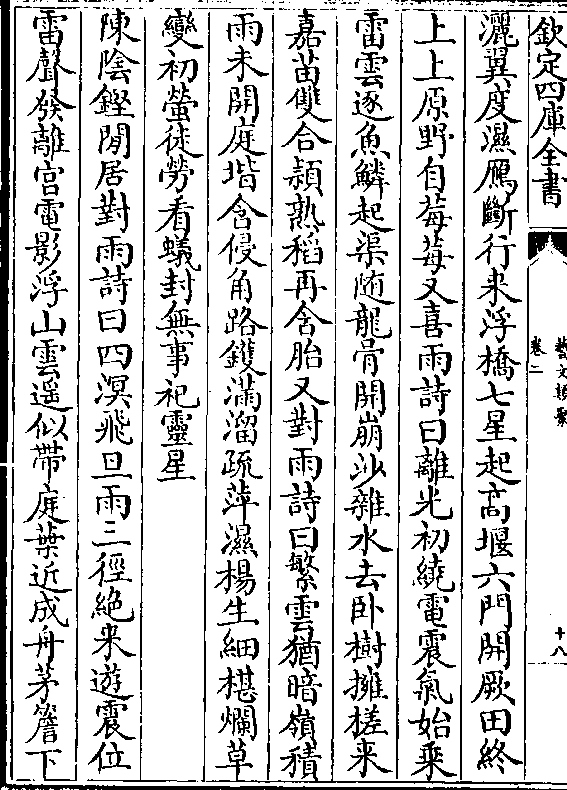 欽定四庫全書
藝文類聚
卷二
十八
灑翼度濕鴈斷行來浮橋七星起高堰六門開厥田終
上上原野自莓莓又喜雨詩曰離光初繞電震氣始乘
雷雲逐魚鱗起渠隨龍骨開崩沙雜水去卧樹擁槎来
嘉苗雙合頴熟稻再含胎又對雨詩曰繁雲猶暗嶺積
雨未開庭堦含侵角路鑊滿溜疏萍濕楊生細椹爛草
變初螢徒勞看蟻封無事祀靈星
陳陰鏗閒居對雨詩曰四溟飛旦雨三徑絶来遊震位
雷聲發離宮電影浮山雲遥似帶庭葉近成舟茅簷下